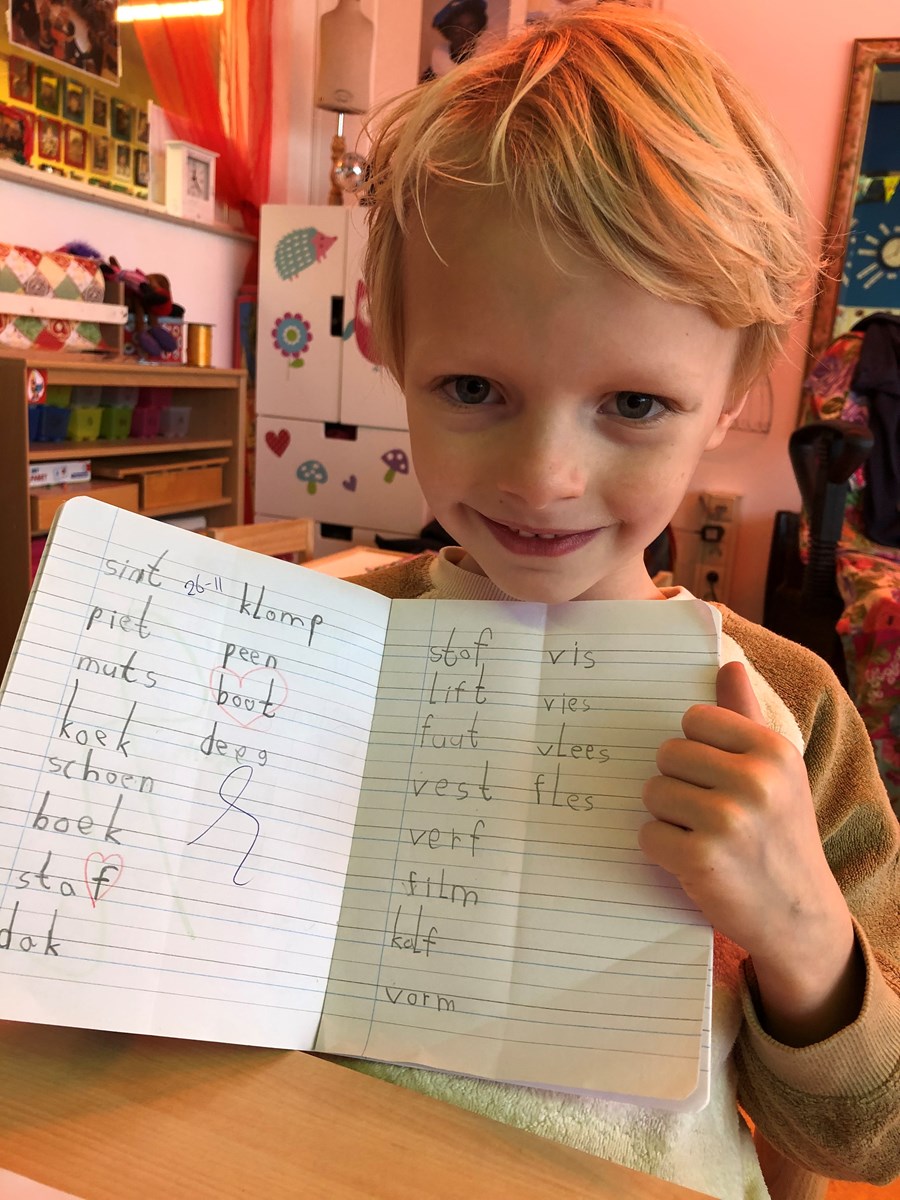 sint
piet
muts
koek
schoen
boek
staf
dak
26-11
klomp
peen
boot
deeg
stof
lift
fuut
vest
verf
film
kalf
vorm
vis
vies
vlees
fles